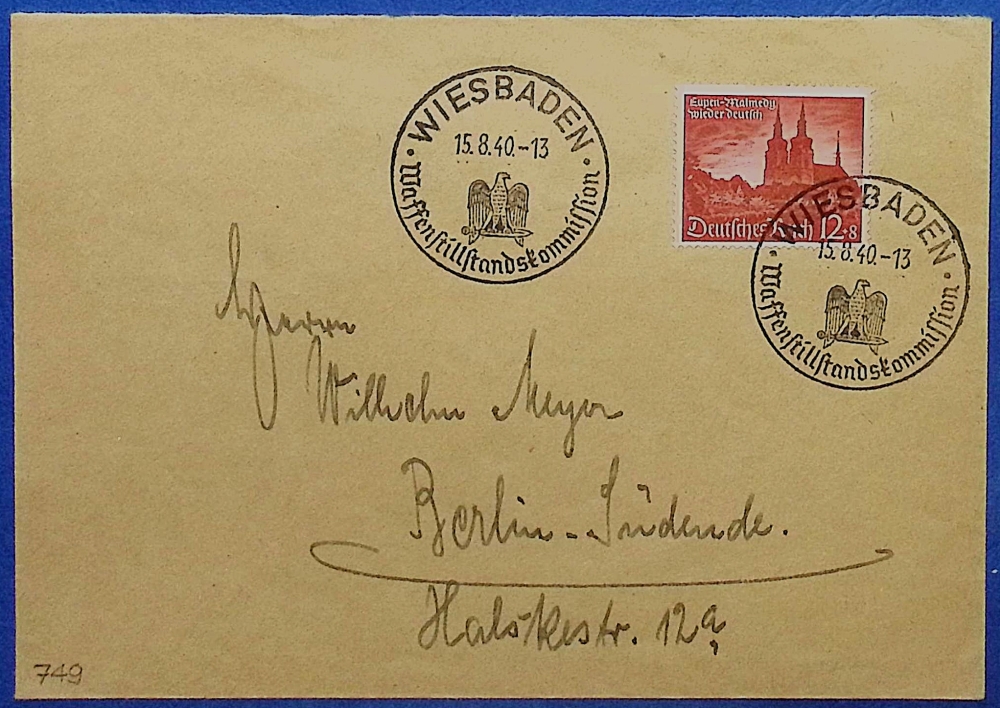 WIESBADEN
15.8.40.-13
Waffenstillstandskommission
Eupen-Malmedy
wieder deutsch
Deutsches Reich 12+8
WIESBADEN
15.8.40.-13
Waffenstillstandskommission
Herrn
Wilhelm Meyer
Berlin-Südende.
Halskestr. 12a
749